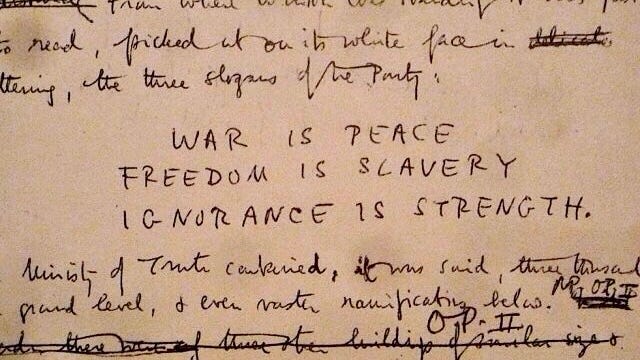 from where
to read, picked out on its white face in
ttering, the three slogans of the Party:
WAR IS PEACE
FREEDOM IS SLAVERY
IGNORANCE IS STRENGTH.
Ministry of Truth contained, it was said, three thousand
ground level, & even vaster ramifications below.
OP. II
there were three other buildings of similar size &